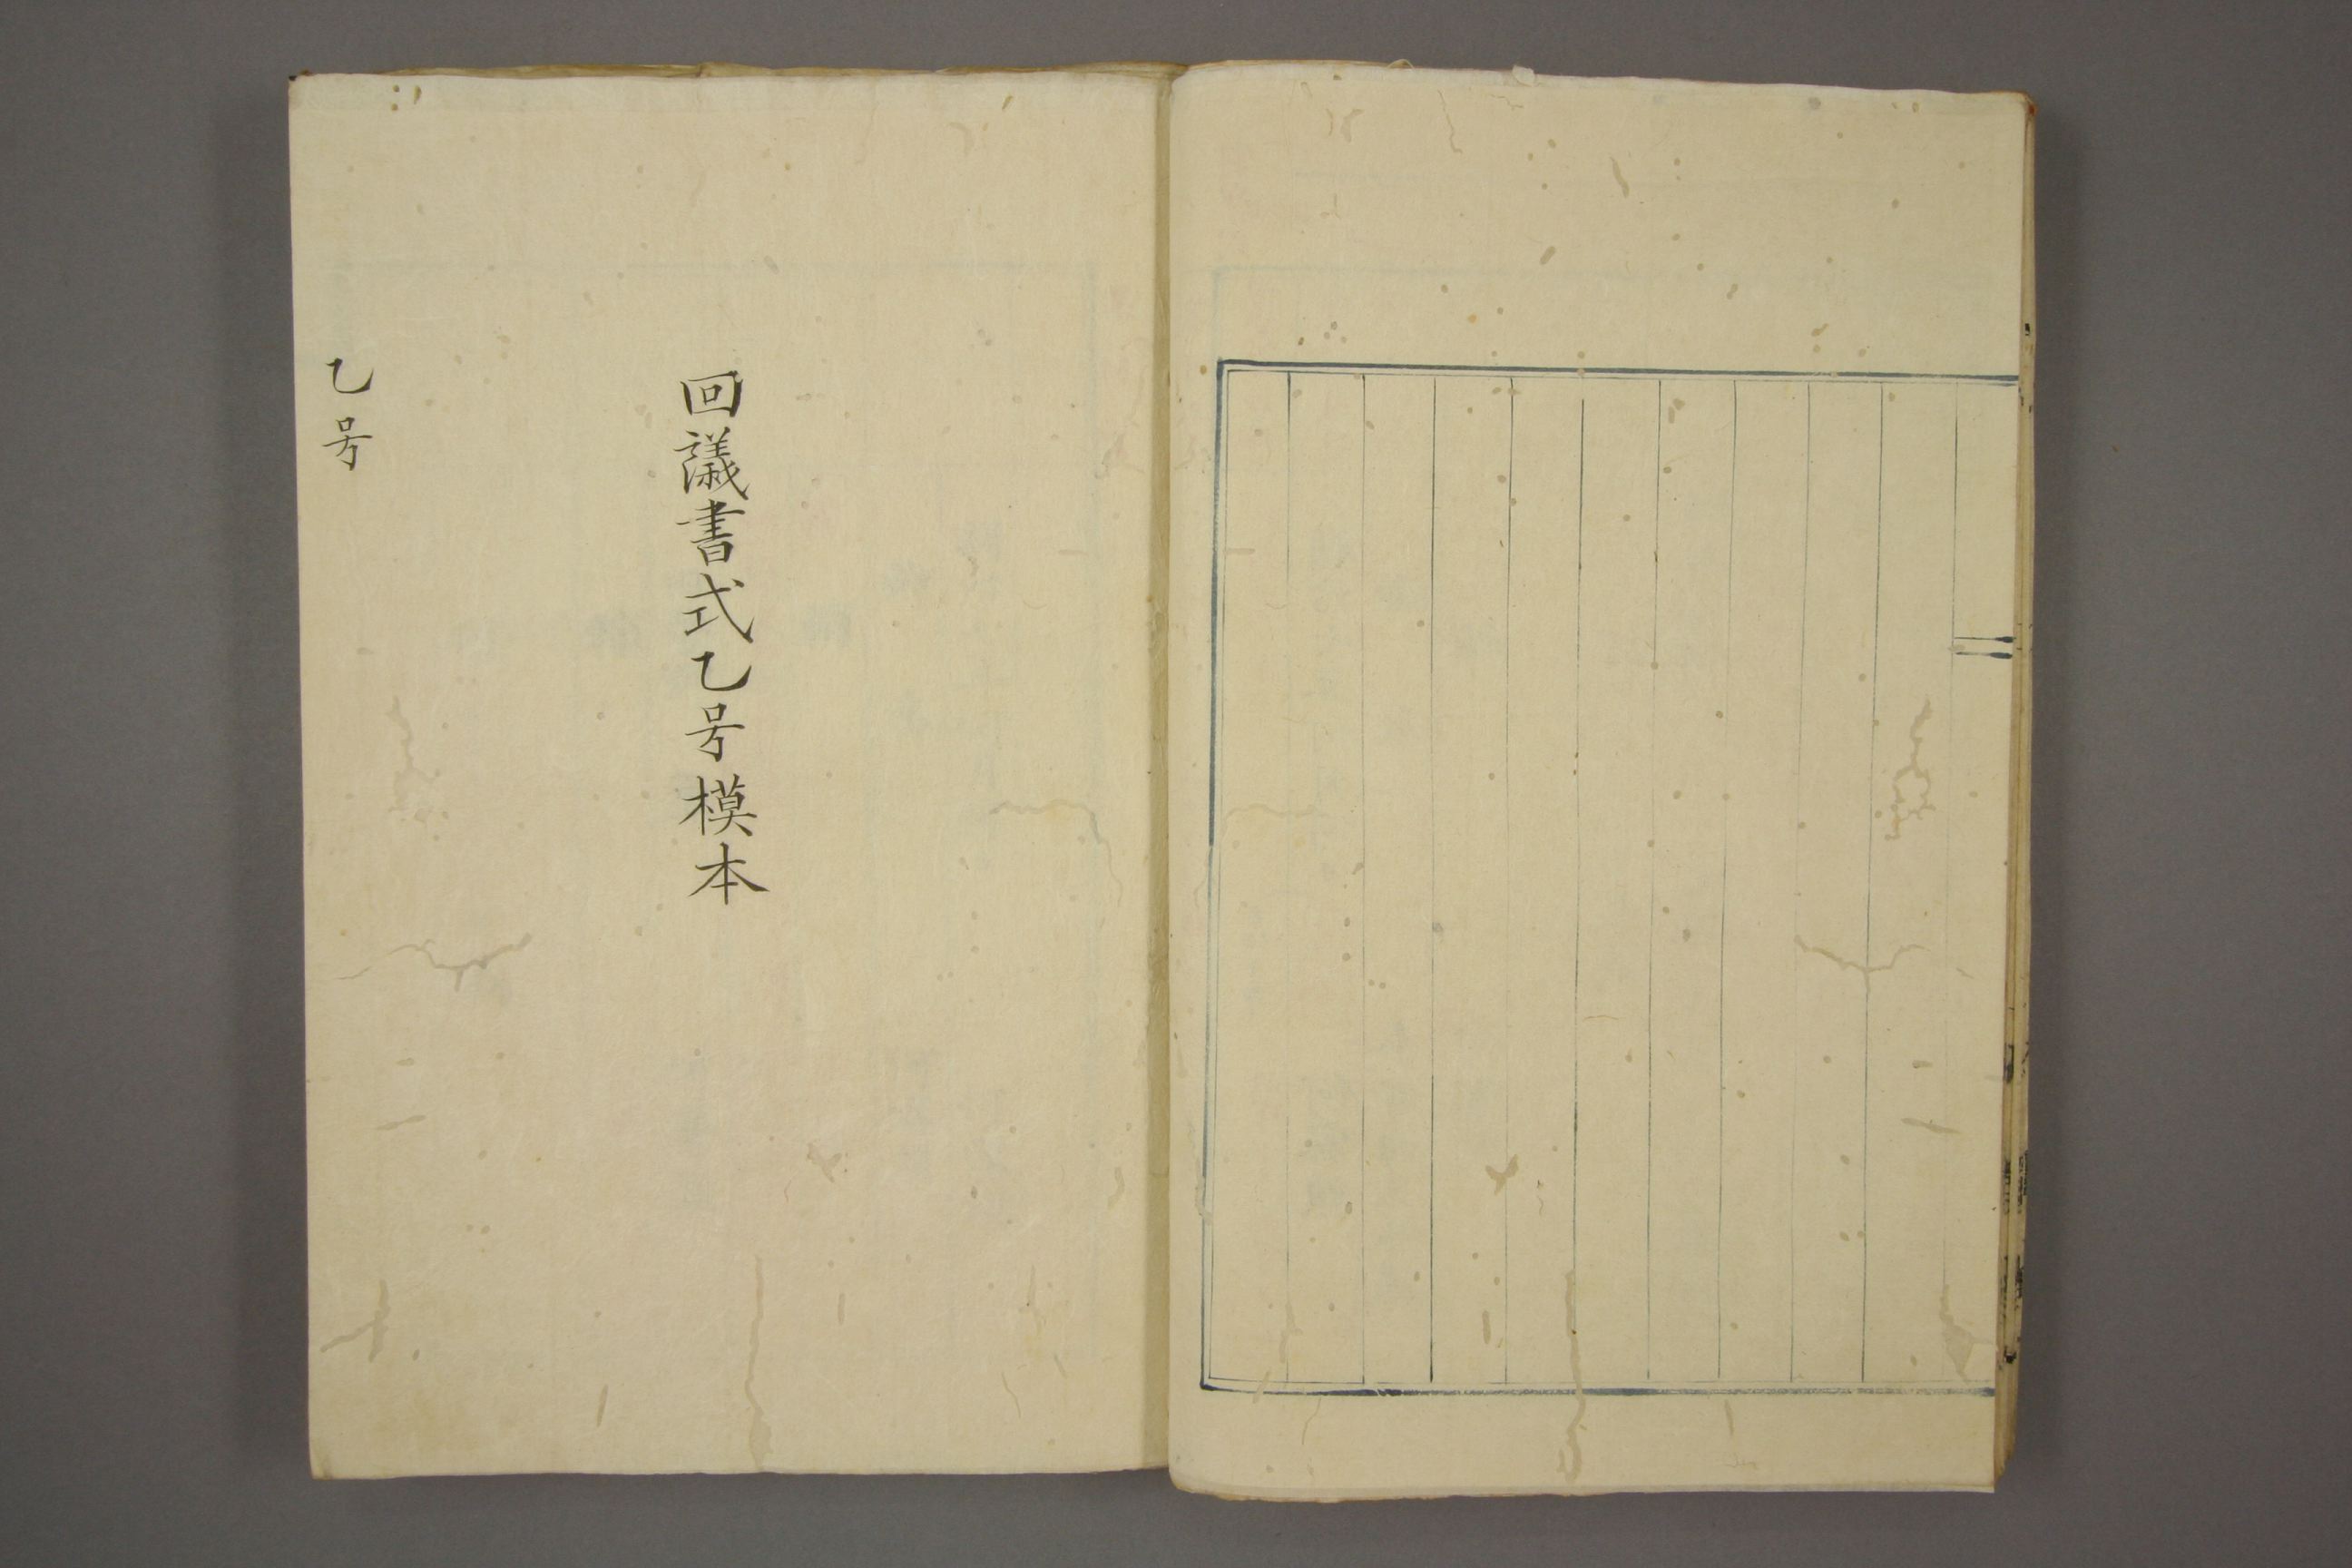 回議書式乙号模本
乙号